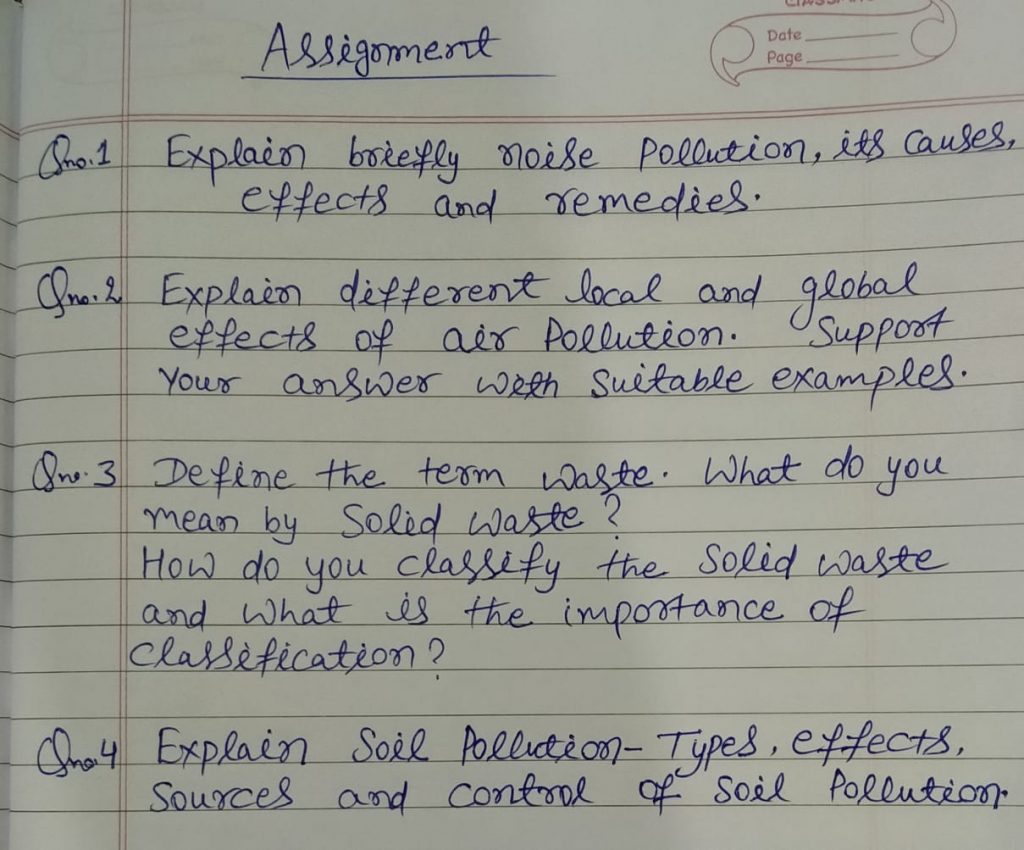 Date
Page
Assignment
Qno.1 Explain briefly noise Pollution, its Causes,
effects and remedies.
Qno.2 Explain different local and global
effects of air Pollution. Support
Your answer with suitable examples.
Qno.3 Define the term waste. What do you
mean by Solid waste?
How do you classify the Solid waste
and what is the importance of
Classification?
Qno.4 Explain Soil Pollution- Types, effects,
Sources and control of Soil Pollution.